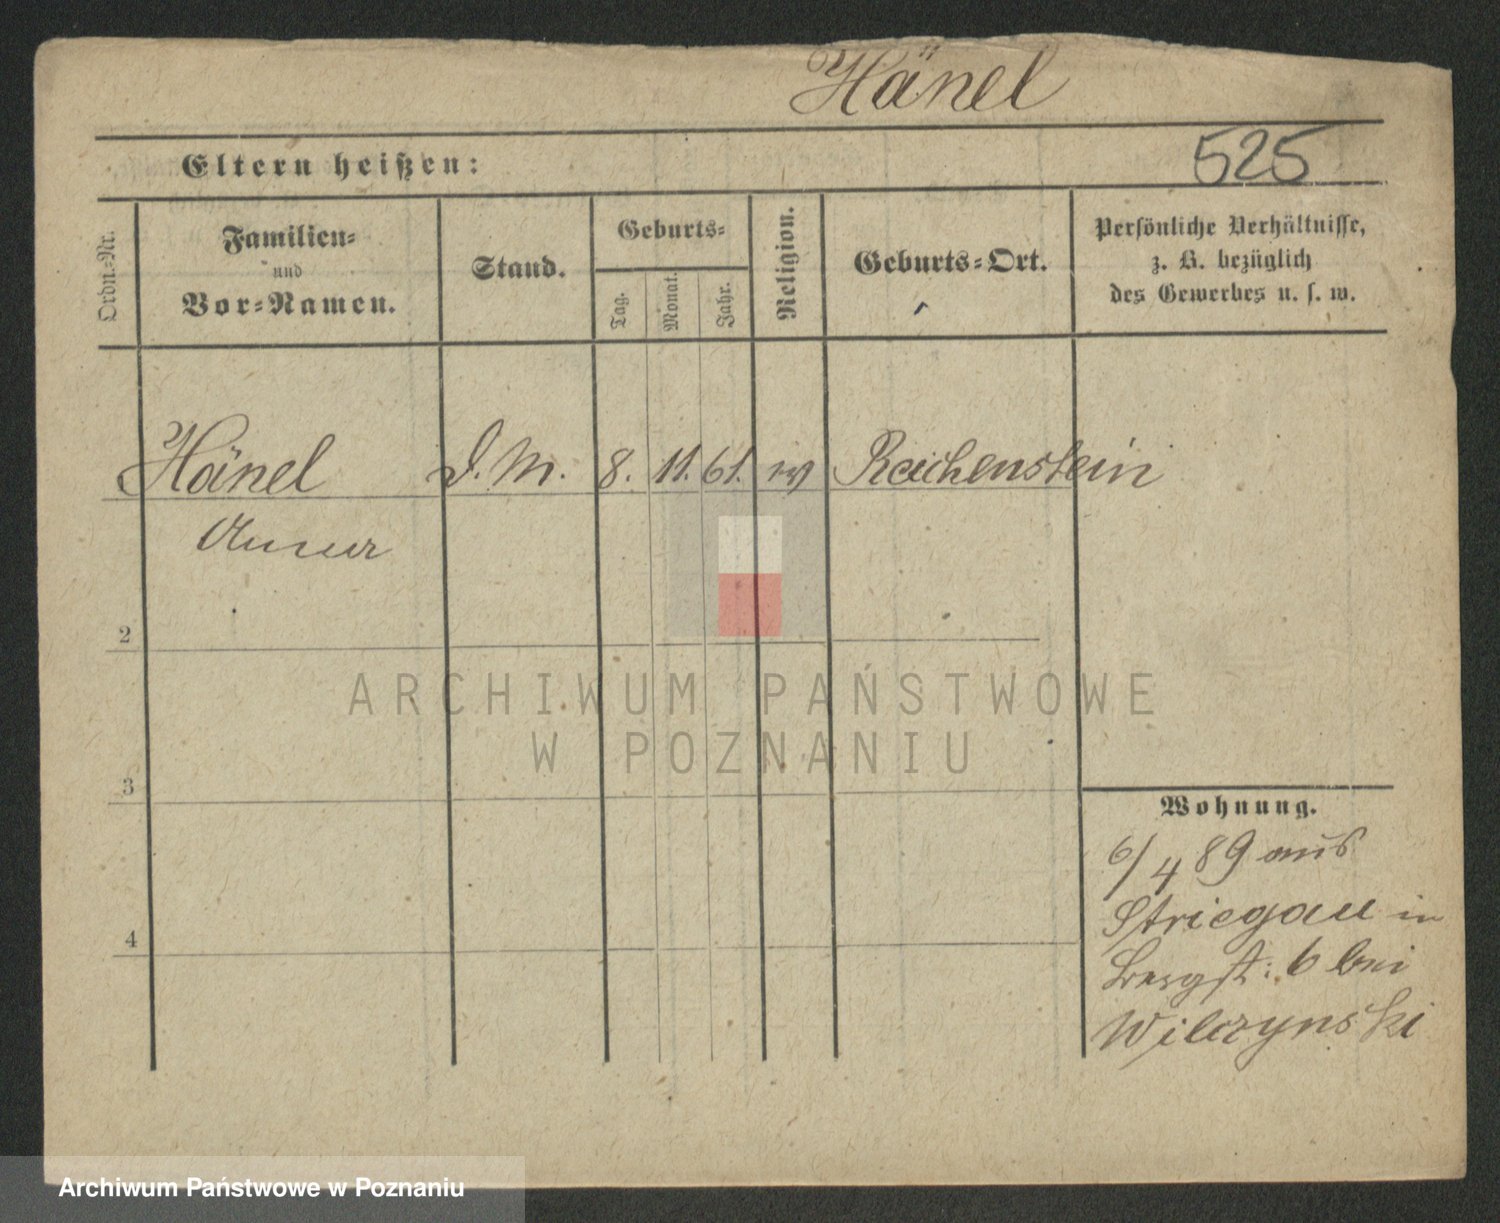 Hänel
525
Eltern heißen:
Ordn.-Nr.
Familien-
und
Vor-Namen.
Stand.
Geburts-
Tag.
Monat.
Jahr.
Religion.
Geburts-Ort.
Persönliche Verhältnisse,
z. B. bezüglich
des Gewerbes u. s. w.
Hänel D. M. 8. 11. 61. Reichenstein
Anna
2
3
4
Wohnung.
6/4 89 aus
Striegau in
Bergst: 6 bei
Wilczynski
ARCHIWUM PAŃSTWOWE
W POZNANIU
Archiwum Państwowe w Poznaniu